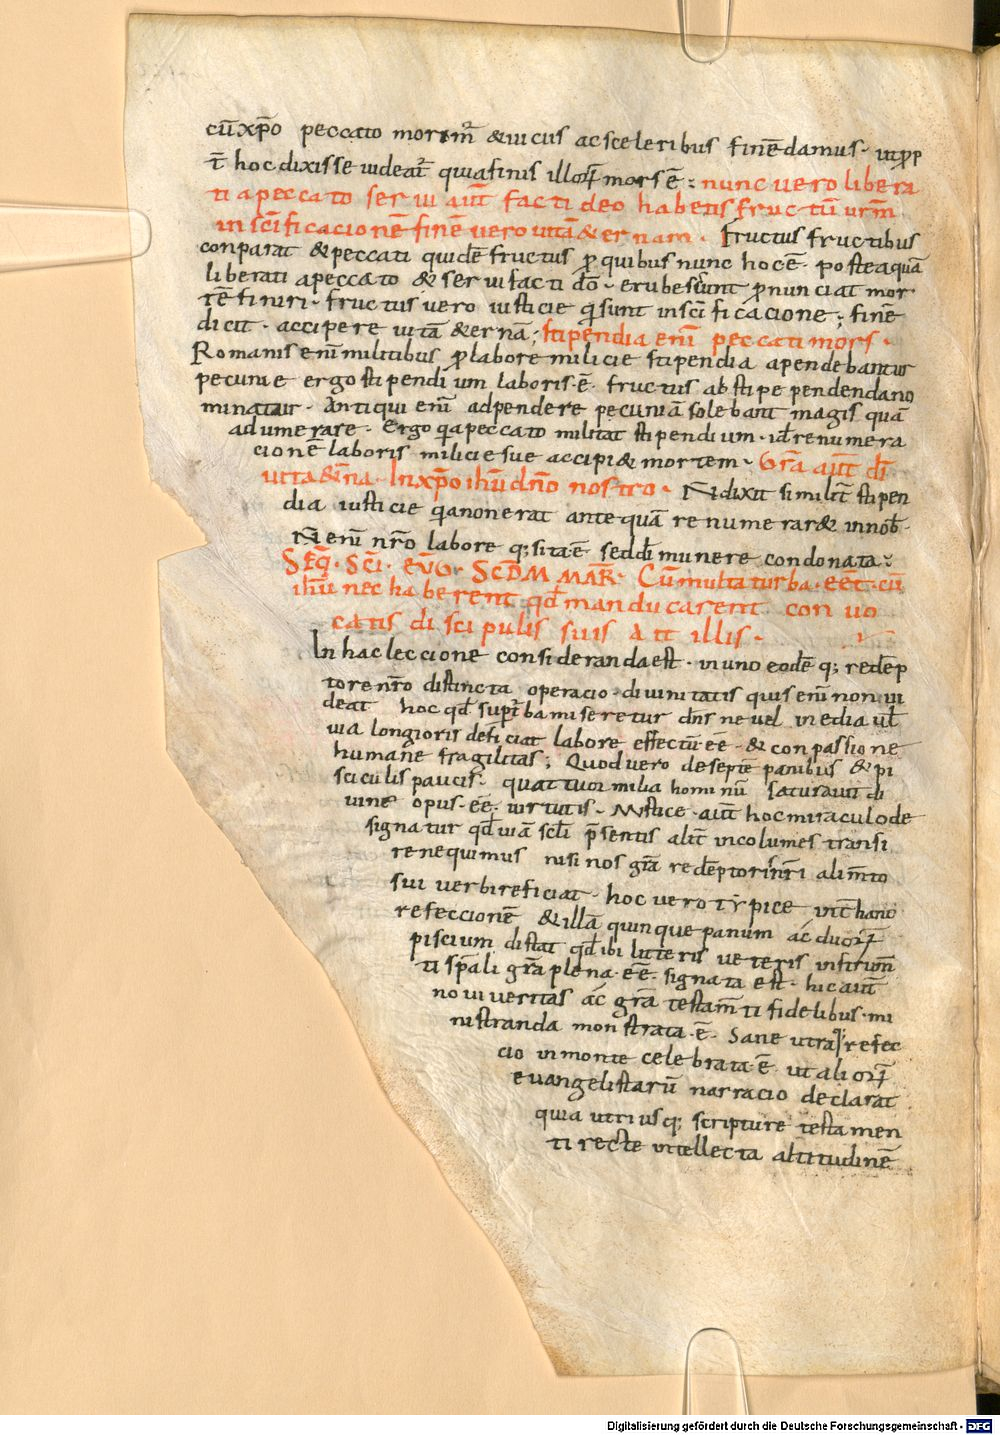 cū xp̄o peccato morim̄ & uicus ac sceleribus finē damus · ut p̱p
t̄ hoc dixisse uideat̄ quia finis illoꝝ mors ē : nunc uero libera
ti a peccato serui aūt facti deo habetis fructū ur̄m
in sc̄ificacionē finē uero uitā & ernam · Fructus fructibus
conparat & peccati quidē fructus ꝓ quibus nunc hoc ē · postea quā
liberati a peccato & serui facti dō · erubescunt ꝓnunciat mor
tē finiri · fructus uero iusticie qi sunt in sc̄ificacione ; finē
dicit · accipere uitā & ernā ; stipendia eni peccati mors ·
Romanis eni militibus ꝓ labore milicie stipendia apendebantur
pecunie ergo stipendium laboris · ē · fructus ab stipe pendendano
minatur · Antiqui eni adpendere pecuniā solebant magis quā
adumerare · Ergo qia peccato militat stipendium · id renumera
cionē laboris milicie sue accipi& mortem · Gr̄a aūt dī
uita & n̄na · In xp̄o ih̄u dn̄o nostro · N̄ dixit similit̄ stipen
dia iusticie qia non erat ante quā renumerar& in nob̄ ·
N̄ eni nr̄o labore q; sita ē · sed dī munere condonata ·
Seq̄ · Sc̄i · eūg · Scd̄m mar̄ · Cū multa turba · eēt · cū
ih̄u nec haberent qd̄ manducarent con uo
catis discipulis suis ait illis ·
In hac leccione consideranda est · in uno eodē q; redēp
tore nr̄o distincta operacio · diuinitatis quis eni non ui
deat hoc qd̄ sup̄ turba miseretur dn̄s ne uel inedia ul̄
uia longioris deficiat labore effectū eē · & conpassione
humane fragilitas ; Quod uero de septē panibus & pi
sciculis paucis · quattuor milia hominū saturauit di
uine opus · eē · uirtutis · Mistice · aūt hoc miraculo de
signatur qd̄ uiā scl̄i p̄sentis alit̄ incolumes transi
re nequimus nisi nos gr̄a redēptoris nr̄i alim̄to
sui uerbi reficiat · hoc uero typice int̄ hanc
refeccionē & illā quinque panum ac duoꝝ
piscium distat qd̄ ibi litteris ueteris instrum̄
ti sp̄ali gr̄a plena · eē · signata est · hic aūt
noui ueritas ac gr̄a testam̄ti fidelibus · mi
nistranda monstrata · ē · Sane utraq; refec
cio in monte celebrata · ē · ut alioꝝ
euangelistarū narracio declarat
quia utriusq; scripture testamen
ti recte intellecta altitudinē
Digitalisierung gefördert durch die Deutsche Forschungsgemeinschaft - DFG